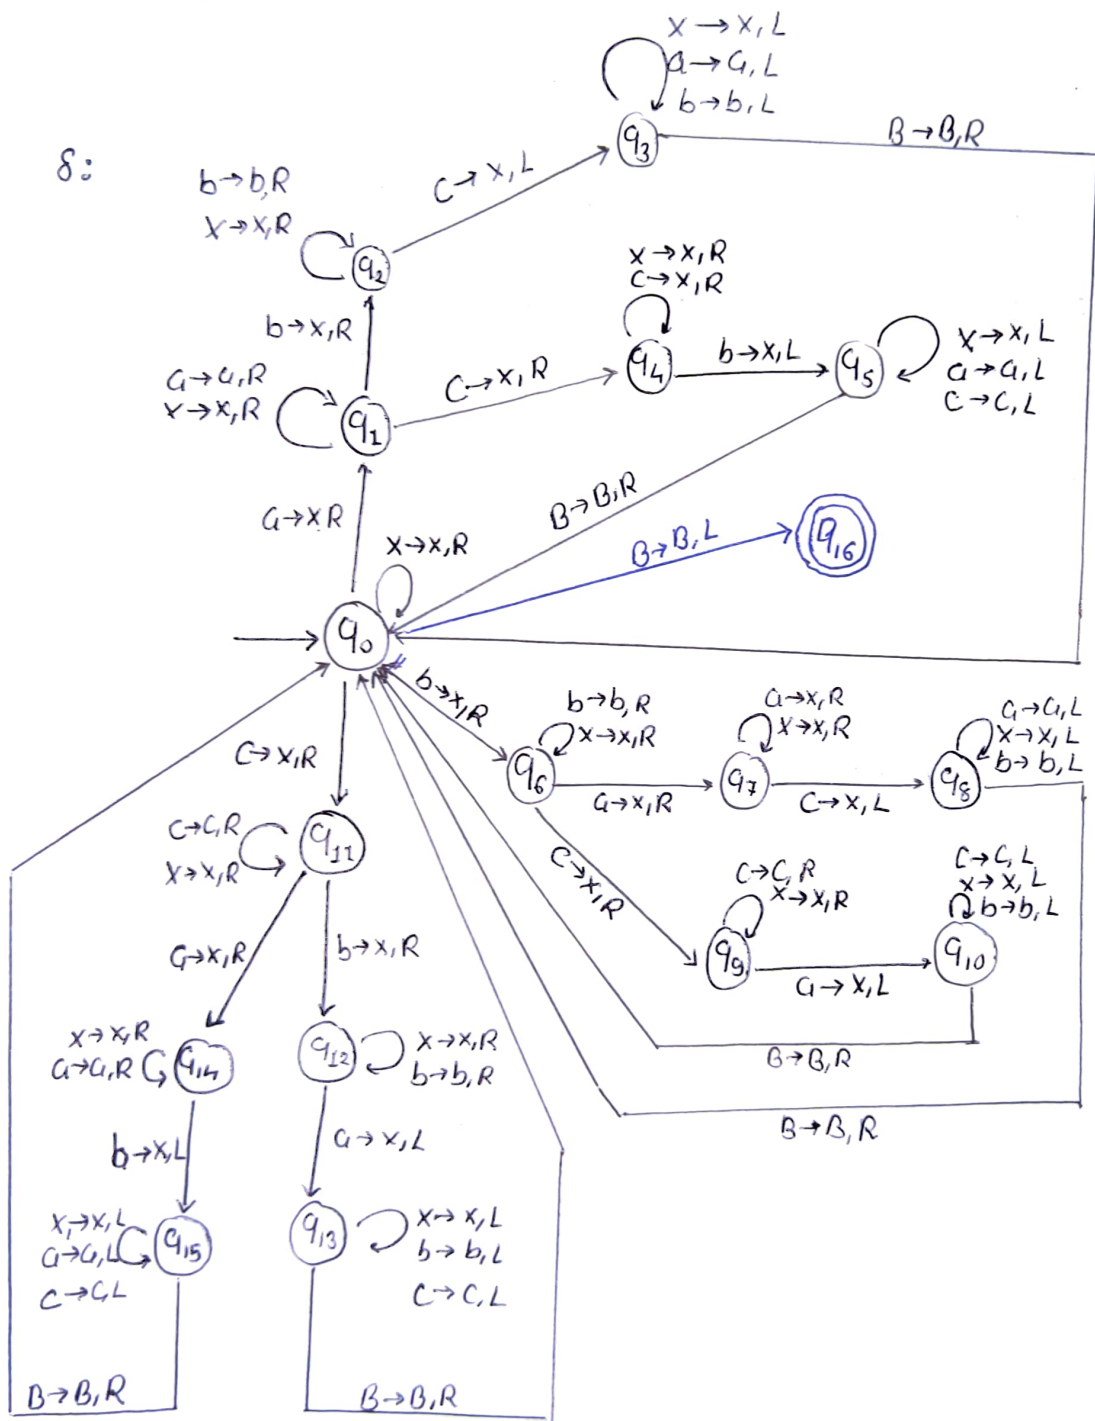 δ:
x → x, L
a → a, L
b → b, L
q3
B → B, R
b → b, R
x → x, R
C → x, L
q2
b → x, R
x → x, R
c → x, R
q4
b → x, L
q5
x → x, L
a → a, L
c → c, L
a → a, R
x → x, R
q1
C → x, R
a → x R
x → x, R
B → B, R
B → B, L
q16
q0
b → x, R
C → x, R
b → b, R
x → x, R
q6
a → x, R
a → x, R
x → x, R
q7
C → x, L
a → a, L
x → x, L
b → b, L
q8
C → C, R
x → x, R
q11
C → x, R
C → C, R
x → x, R
q9
a → x, L
C → C, L
x → x, L
b → b, L
q10
B → B, R
B → B, R
a → x, R
b → x, R
x → x, R
a → a, R
q14
q12
x → x, R
b → b, R
b → x, L
a → x, L
x, → x, L
a → a, L
c → c, L
q15
q13
x → x, L
b → b, L
C → C, L
B → B, R
B → B, R